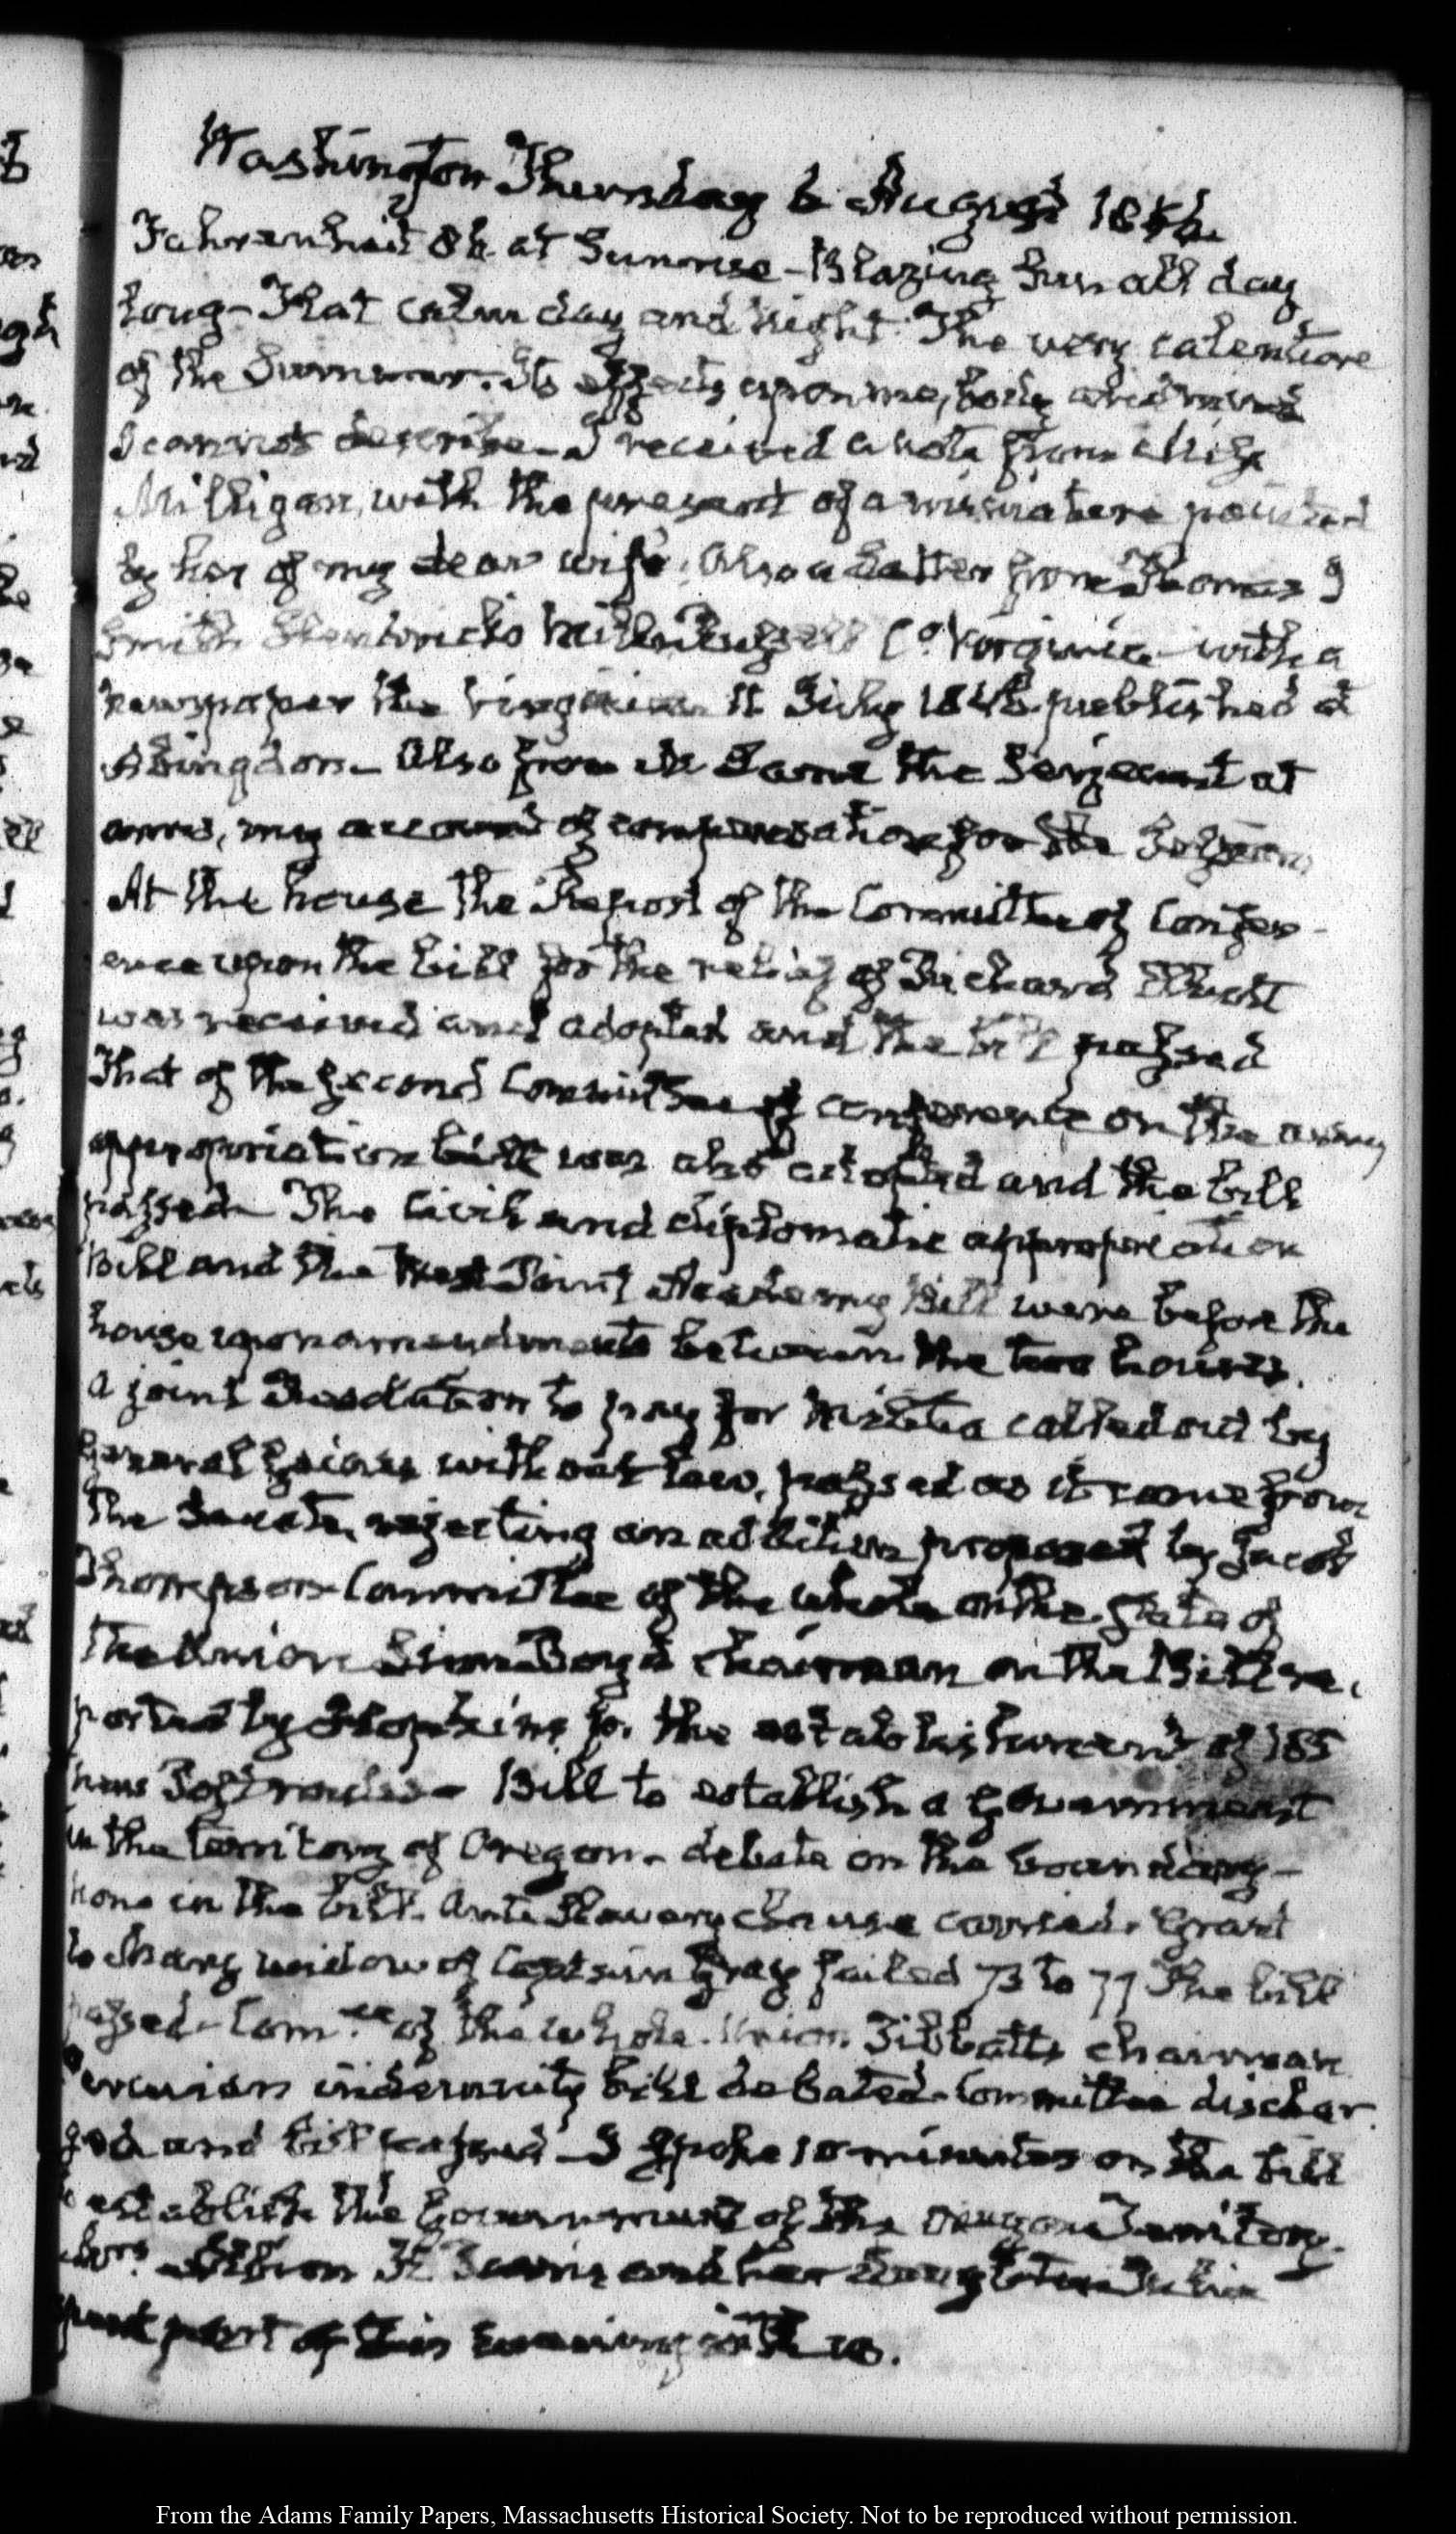 Washington Thursday 6 August 1846.
Fahrenheit 84 at Sunrise – Blazing Sun all day
long – Flat calm day and Night. The very calenture
of the Summer. Its effects upon me, body and mind
I cannot describe – I received a note from Miss
Milligan, with the present of a miniature painted
by her of my dear wife. Also a Letter from Thomas J
Smith Co. Virginia with a
newspaper the Virginian 11 July 1846 published at
Abingdon – Also from the Serjeant at
arms, my account of compensation for the Session
At the house the Report of the Committee of Confer-
ence upon the bill for the relief of Richard
was received and adopted and the bill passed
That of the second Committee of conference on the army
appropriation bill was also adopted and the bill
passed – The civil and diplomatic appropriation
Bill and the West Point Academy Bill were before the
house upon amendments between the two houses.
A joint Resolution to pay for Militia called out by
General Gaines without law, passed as it came from
the Senate, rejecting an addition proposed by Jacob
Thompson – Committee of the whole on the State of
the Union Linn Boyd chairman on the Bill re-
ported by Hopkins for the establishment of 185
new Postroutes – Bill to establish a government
in the territory of Oregon – debate on the boundary –
none in the bill. Anti Slavery clause carried. Grant
to widow of Captain Gray failed 73 to 77 The bill
passed – Com.ee of the whole. Union. Tibbatts chairman
indemnity bill debated. Committee dischar-
ged and bill passed – I spoke 10 minutes on the bill
to establish the Government of the Oregon Territory.
Mrs. and her daughter Julia
part of this evening with us.
From the Adams Family Papers, Massachusetts Historical Society. Not to be reproduced without permission.